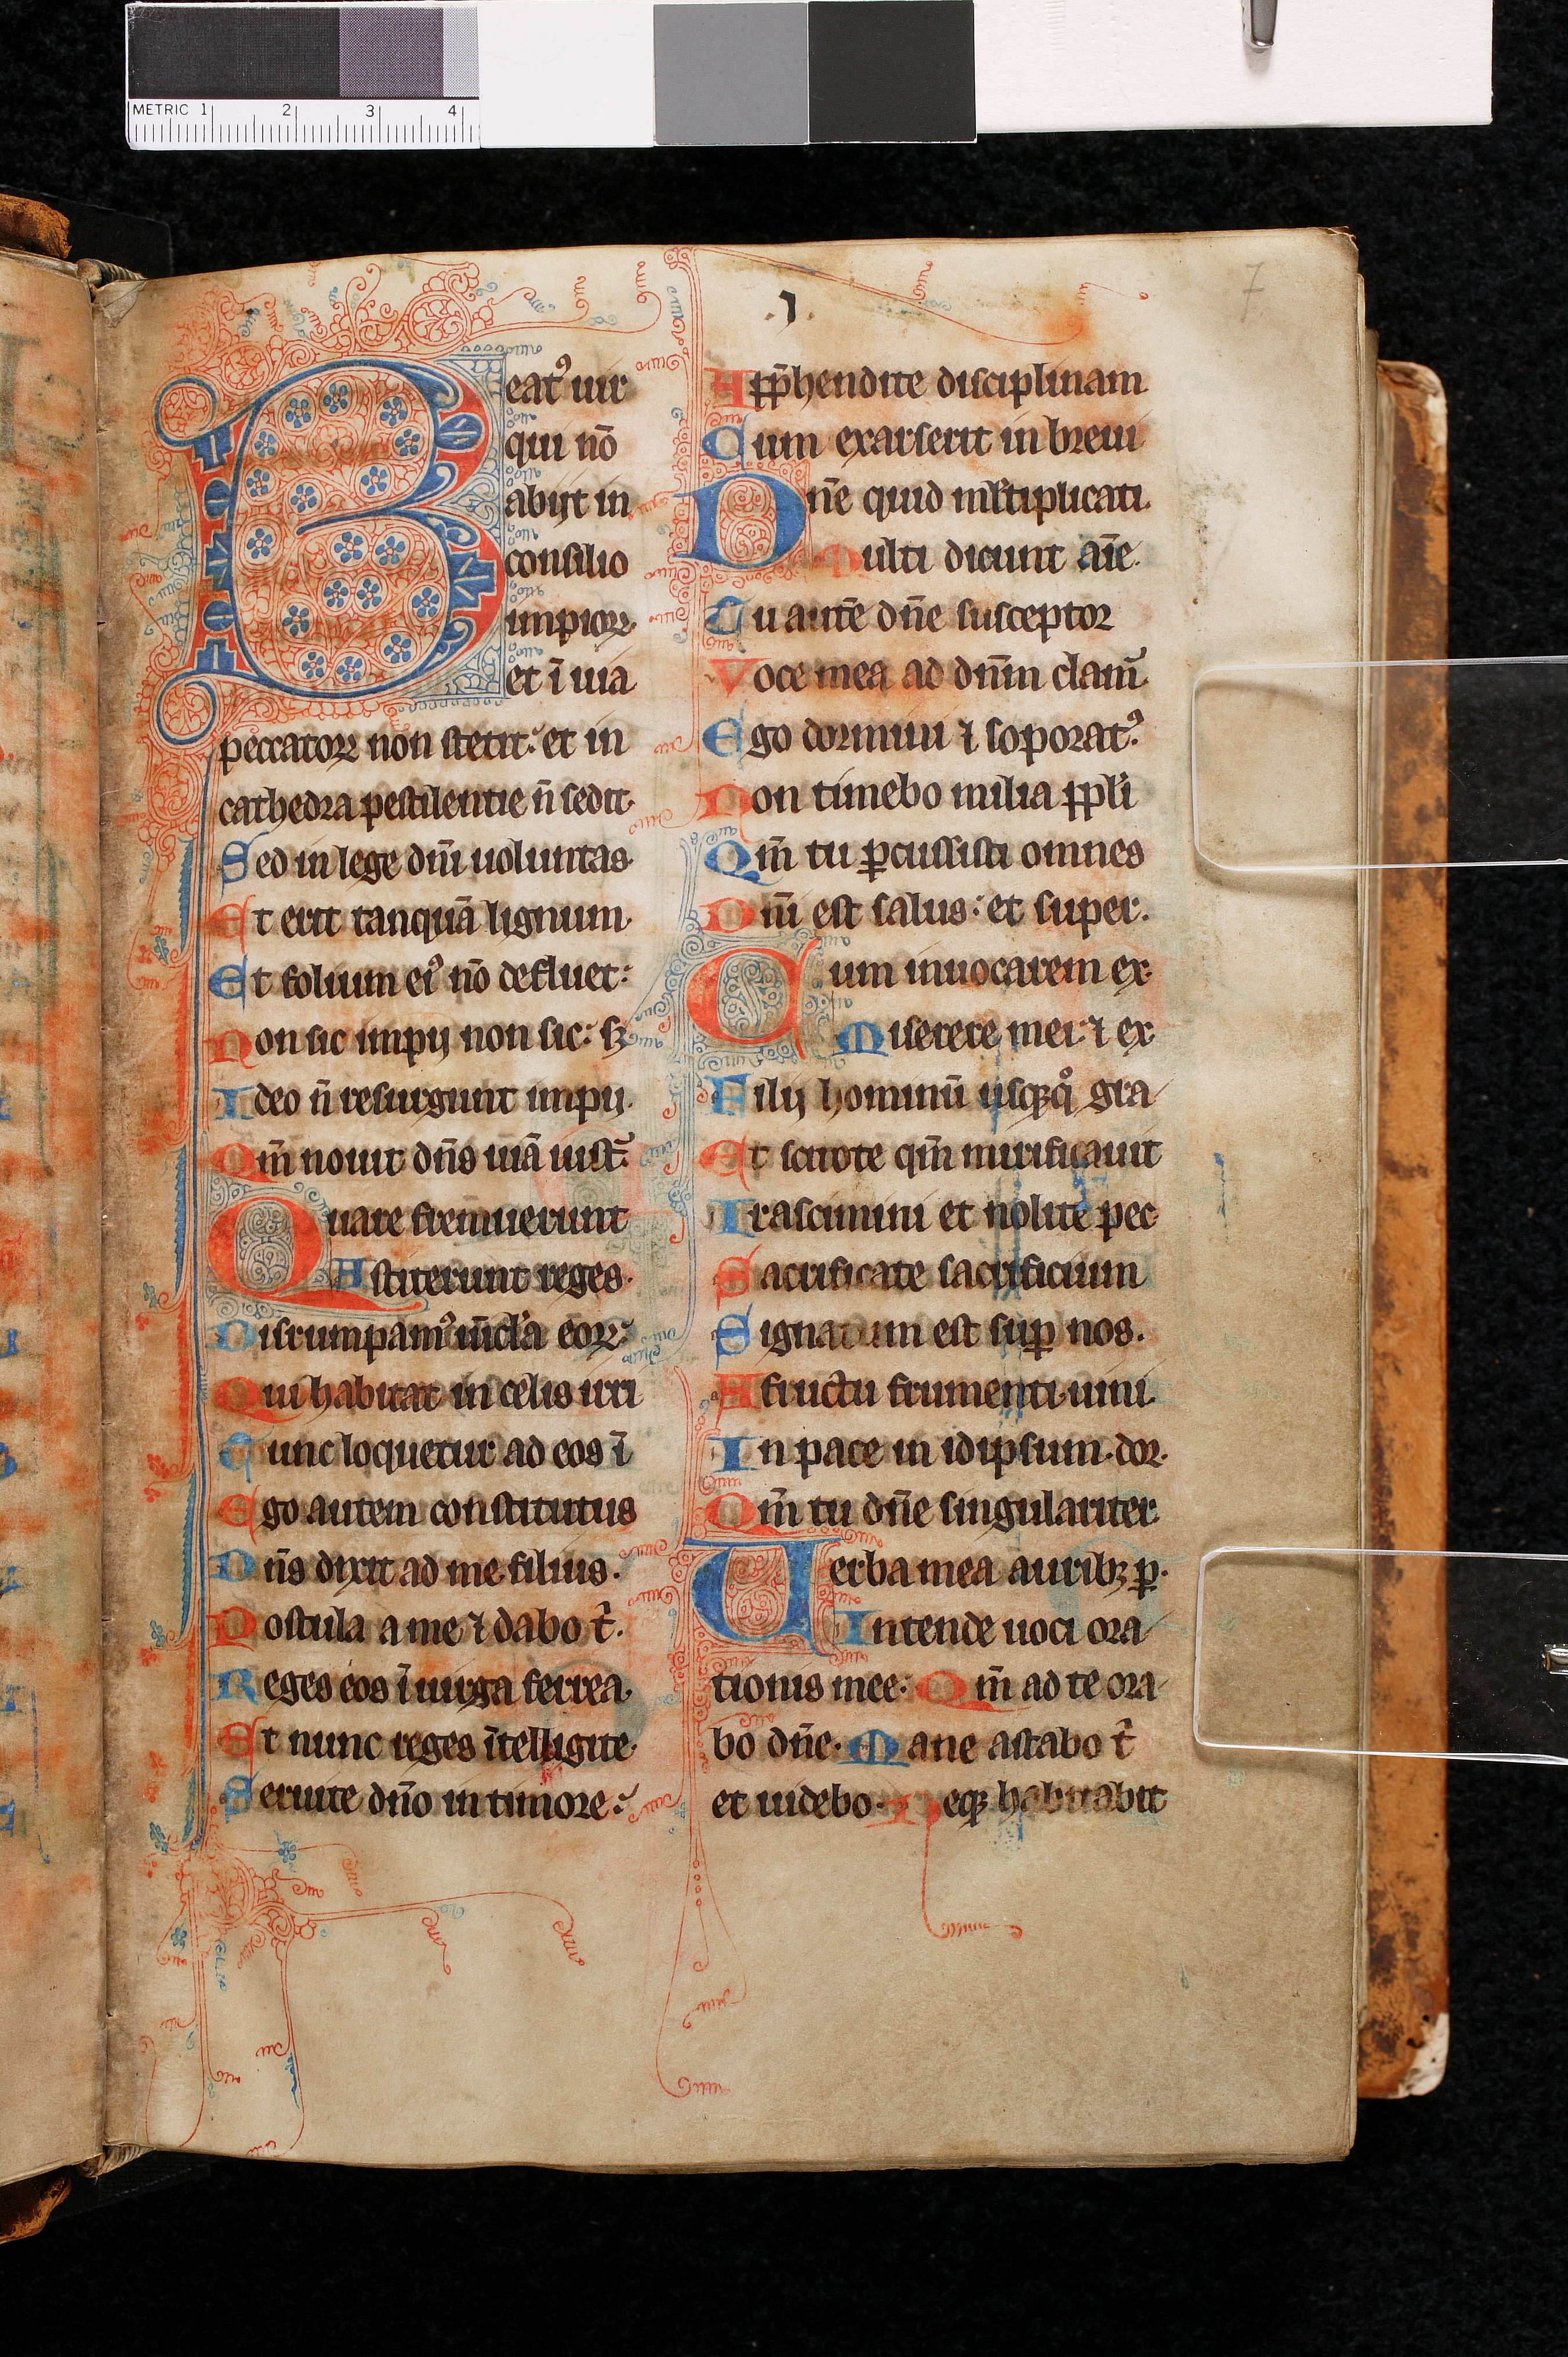 METRIC 1 2 3 4
7
.j.
Beatꝰ uir
qui nō
abijt in
consilio
impioꝝ
et ī uia
peccatoꝝ non stetit: et in
cathedra pestilentie n̄ sedit.
Sed in lege dn̄i uoluntas
Et erit tanquā lignum.
Et folium eiꝰ nō defluet:
Non sic impij non sic: sꝫ
Ideo n̄ resurgunt impij.
Qm̄ nouit dn̄s uiā iust
Quare fremuerunt
Astiterunt reges.
Disrumpamꝰ uīcl'a eoꝝ:
Qui habitat in celis irri
Tunc loquetur ad eos ī
Ego autem constitutus
Dn̄s dixit ad me filius.
Postula a me ⁊ dabo t̉.
Reges eos ī uirga ferrea.
Et nunc reges ītelligite.
Seruite dn̄o in timore:
App̄hendite disciplinam
Cum exarserit in breui
Dn̄e quid ml'tiplicati.
Multi dicunt aīe.
Tu autē dn̄e susceptor
Voce mea ad dn̄m clam
Ego dormiui ⁊ soporatꝰ.
Non timebo milia ppl'i
Qm̄ tu ꝑcussisti omnes
Dn̄i est salus: et super.
Cum inuocarem ex
Miserere mei: ⁊ ex
Filij hominū usqꝫq̊ gra
Et scitote qm̄ mirificauit
Irascimini et nolite pec
Sacrificate sacrificium
Signatum est suꝑ nos.
A fructu frumenti uini.
In pace in idipsum. dor.
Qm̄ tu dn̄e singulariter
Uerba mea auribꝫ ꝑ.
Intende uoci ora
tionis mee: Qm̄ ad te ora
bo dn̄e. Mane astabo t̉
et uidebo. Neqꝫ habitabit